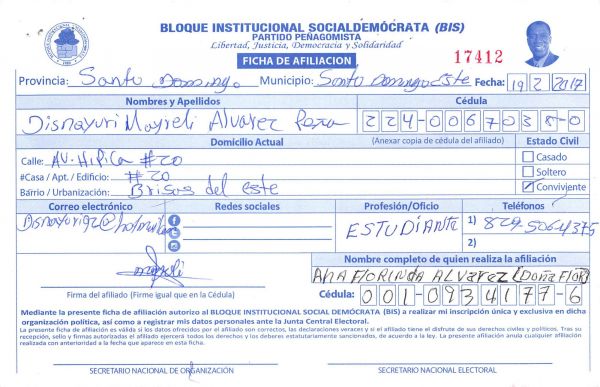 BLOQUE INSTITUCIONAL SOCIALDEMÓCRATA (BIS)
PARTIDO PEÑAGOMISTA
Libertad, Justicia, Democracia y Solidaridad
FICHA DE AFILIACION
17412
Provincia: Santo Domingo Municipio: Santo Domingo Este Fecha: 19 2 2017
Nombres y Apellidos Cédula
Disnayuri Mayreli Alvarez 224-0067038-0
Domicilio Actual (Anexar copia de cédula del afiliado) Estado Civil
Calle: AV. Hipica #20 Casado
#Casa / Apt. / Edificio: #20 Soltero
Bárrio / Urbanización: Brisas del este Conviviente
Correo electrónico Redes sociales Profesión/Oficio Teléfonos
Disnayuri92@hotmail ESTUDIANTE 1) 829 5064375
2)
Nombre completo de quien realiza la afiliación
ANA FLORINDA ALVAREZ (DOÑA FLOR)
Firma del afiliado (Firme igual que en la Cédula) Cédula: 001-0934177-6
Mediante la presente ficha de afiliación autorizo al BLOQUE INSTITUCIONAL SOCIAL DEMÓCRATA (BIS) a realizar mi inscripción única y exclusiva en dicha
organización política, así como a registrar mis datos personales ante la Junta Central Electoral.
La presente ficha de afiliación es válida si los datos ofrecidos y por el afiliado son correctos, las declaraciones veraces y si el afiliado tiene el disfrute de sus derechos civiles y políticos. Tras su
recepción, sello y firmas autorizadas el afiliado ejercerá todos los derechos y los deberes estatutariamente sancionados, de acuerdo a la ley. La presente afiliación anula cualquier afiliación
realizada con anterioridad a la fecha que aparece en esta ficha.
SECRETARIO NACIONAL DE ORGANIZACIÓN SECRETARIO NACIONAL ELECTORAL